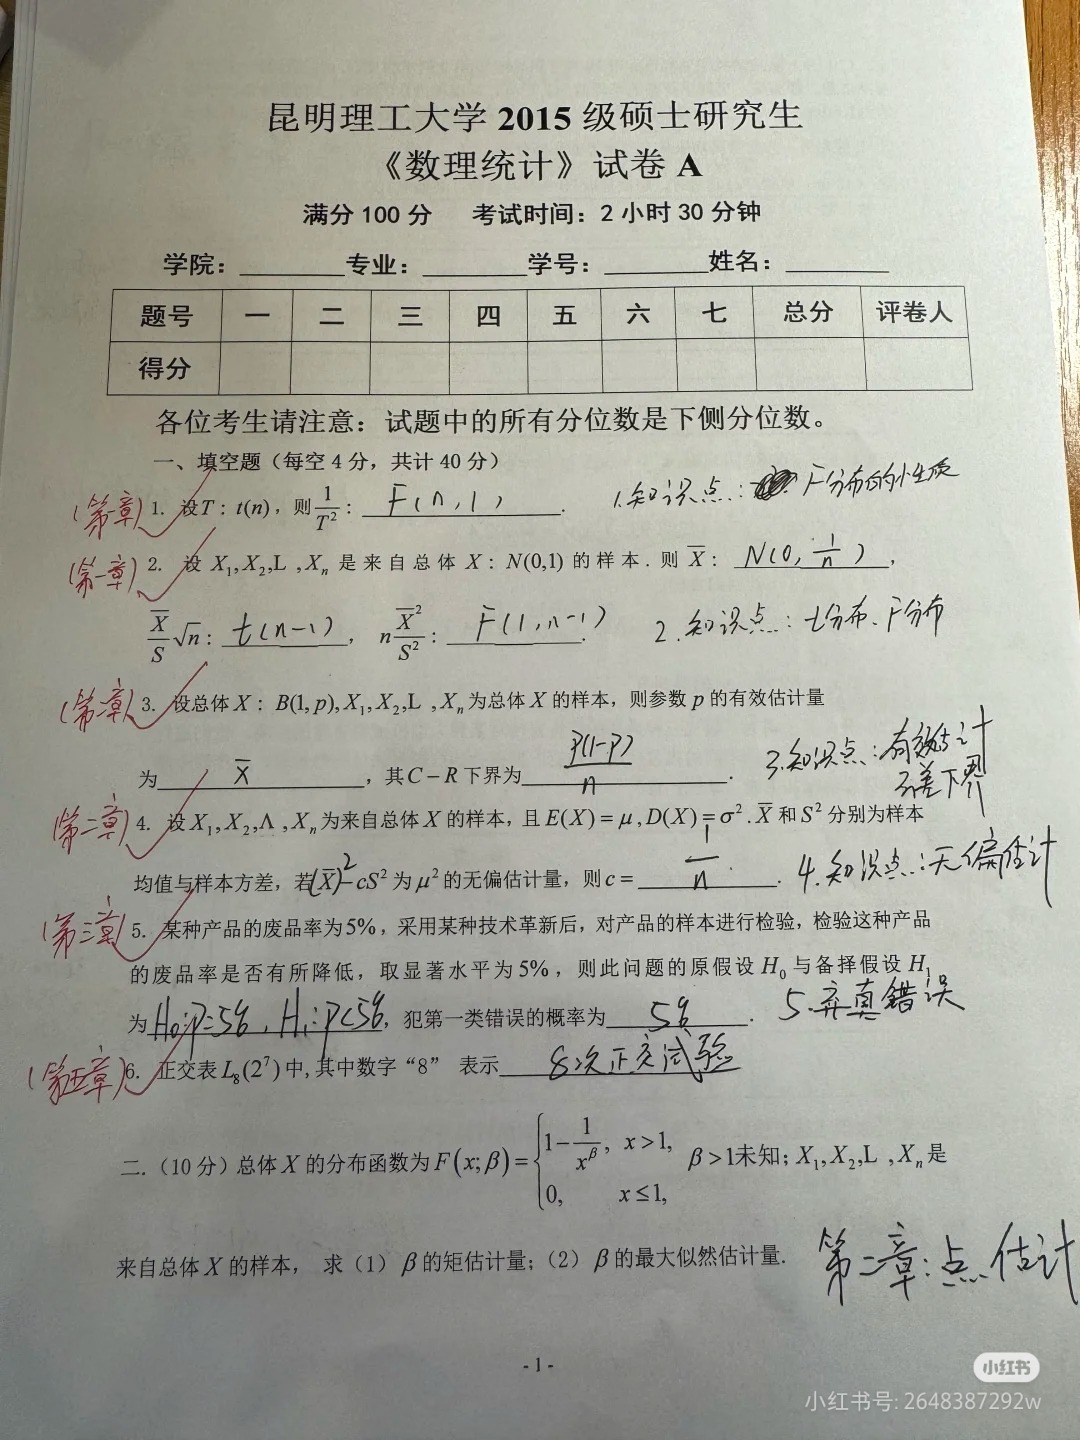 昆明理工大学 2015 级硕士研究生
《数理统计》试卷 A
满分 100 分 考试时间：2 小时 30 分钟
学院：________专业：________学号：________姓名：________
题号 一 二 三 四 五 六 七 总分 评卷人
得分
各位考生请注意：试题中的所有分位数是下侧分位数。
一、填空题（每空 4 分，共计 40 分）
(第一章) 1. 设T: t(n)，则 1/T²: F(n,1). 1.知识点: F分布的性质
(第一章) 2. 设 X₁,X₂,L ,Xₙ 是来自总体 X: N(0,1) 的样本. 则 X̄: N(0, 1/n)，
X̄/S √n: t(n-1)， n X̄²/S²: F(1,n-1). 2.知识点: t分布、F分布
(第二章) 3. 设总体 X: B(1,p), X₁,X₂,L ,Xₙ为总体 X 的样本，则参数 p 的有效估计量
为 X̄，其C-R下界为 p(1-p)/n. 3.知识点: 有效估计
方差下界
(第二章) 4. 设 X₁,X₂,Λ ,Xₙ为来自总体 X 的样本，且 E(X)=μ, D(X)=σ². X̄ 和 S² 分别为样本
均值与样本方差，若(X̄)²-cS² 为 μ² 的无偏估计量，则 c= 1/n. 4.知识点: 无偏估计
(第三章) 5. 某种产品的废品率为5%，采用某种技术革新后，对产品的样本进行检验，检验这种产品
的废品率是否有所降低，取显著水平为5%，则此问题的原假设 H₀ 与备择假设 H₁
为 H₀:p=5%, H₁:p<5%，犯第一类错误的概率为 5%. 5.弃真错误
(第五章) 6. 正交表 L₈(2⁷) 中,其中数字“8” 表示 8次正交试验
二.（10 分）总体 X 的分布函数为 F(x;β)={1-1/x^β, x>1, β>1未知; X₁,X₂,L ,Xₙ 是
0, x≤1,
来自总体 X 的样本， 求（1） β 的矩估计量;（2） β 的最大似然估计量.
第二章: 点估计
- 1 -
小红书
小红书号: 2648387292w